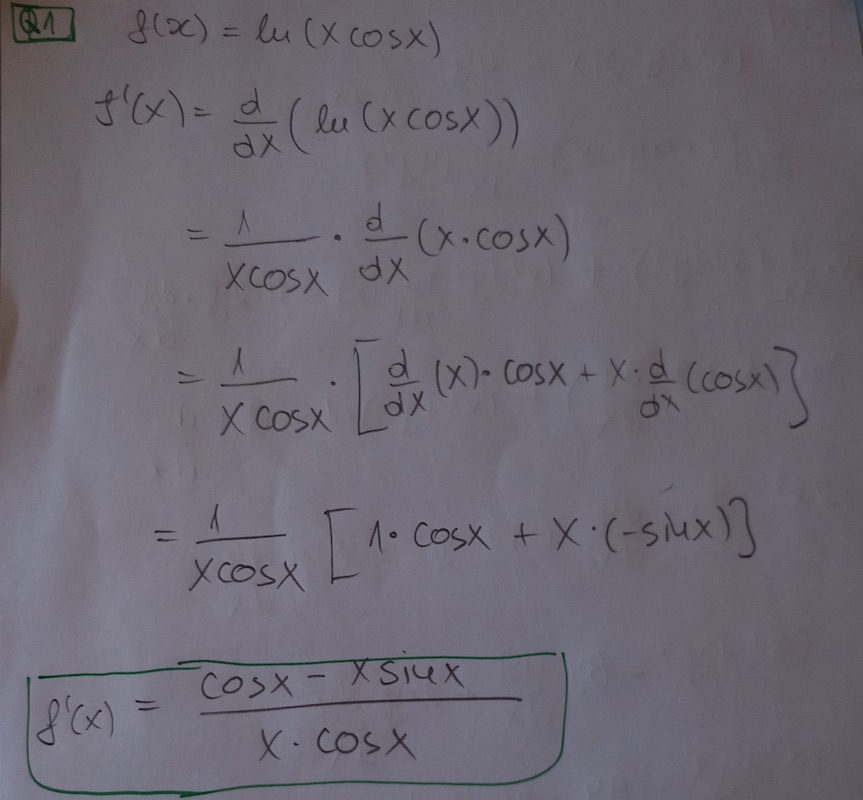 Q1 f(x) = ln(x cosx)
f'(x) = d/dx (ln(x cosx))
= 1/(x cosx) · d/dx (x·cosx)
= 1/(x cosx) · [d/dx (x)· cosx + x· d/dx (cosx)]
= 1/(x cosx) [1· cosx + x·(-sinx)]
f'(x) = (cosx - x sinx)/(x · cosx)